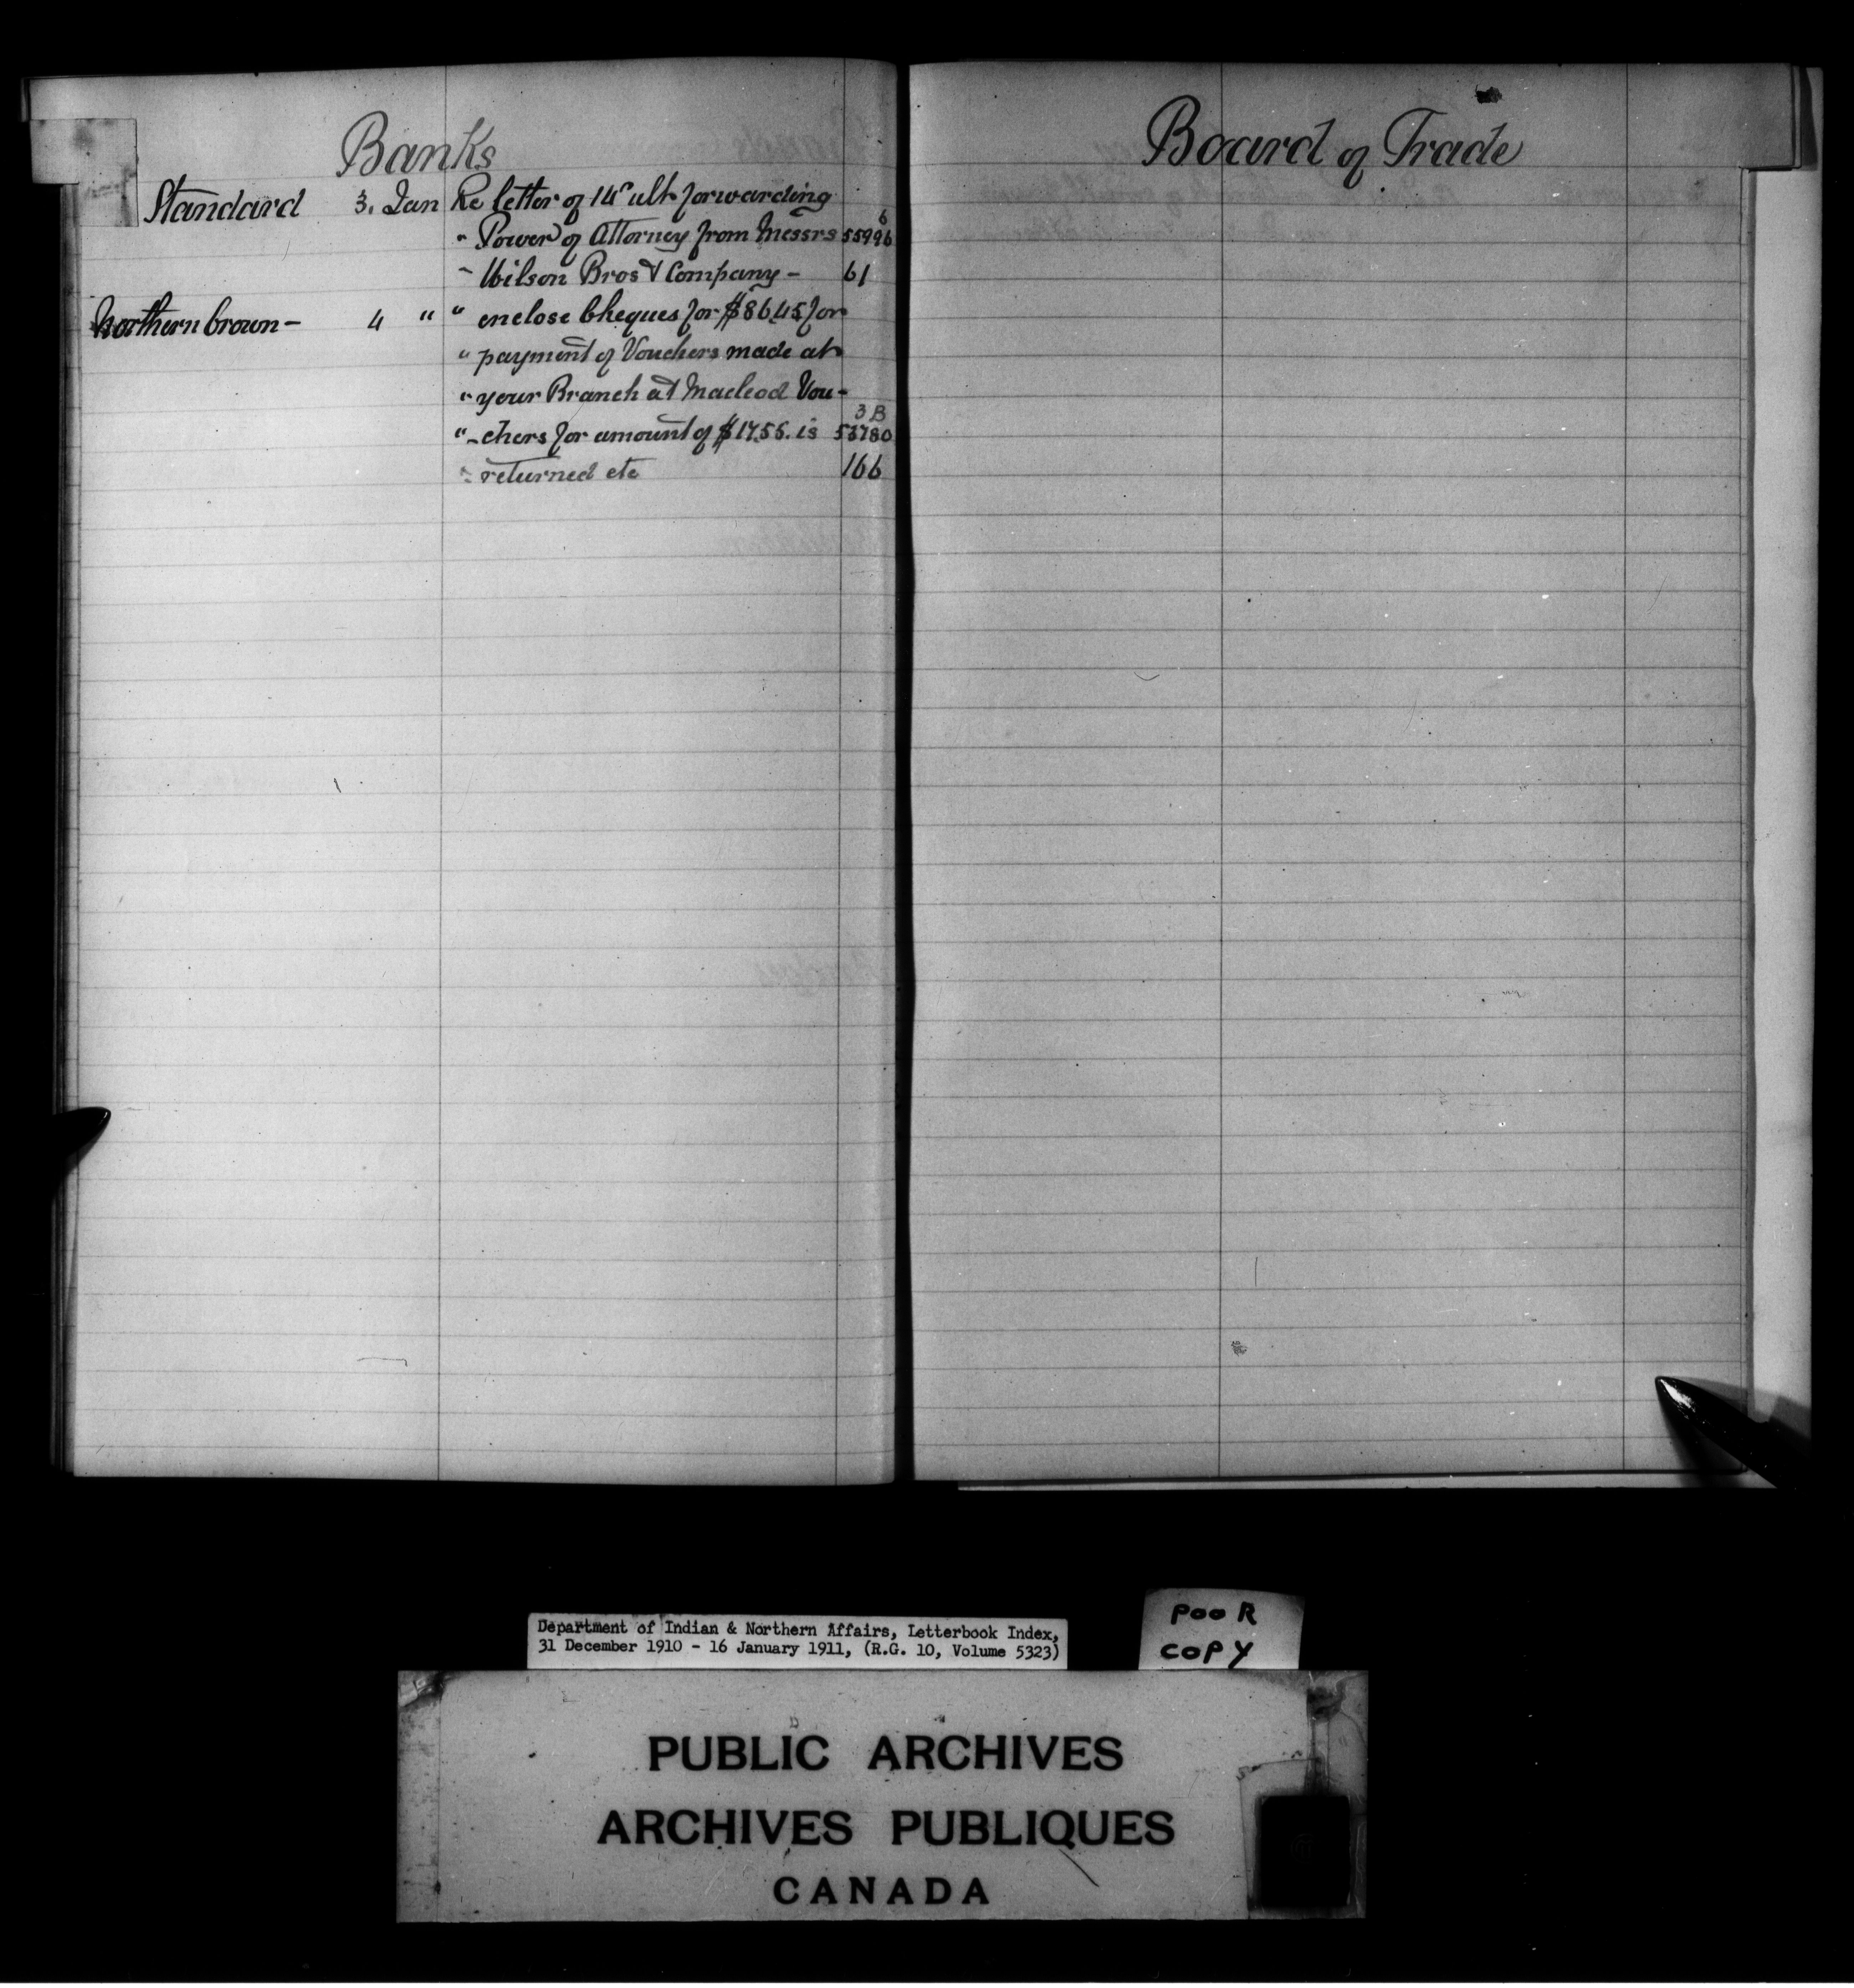 Banks
Standard 3. Jan Re letter of 14" ult forwarding
6
" Power of Attorney from Messrs 55996
" Wilson Bros & Company - 61
Northern Crown - 4 " " enclose Cheques for $86.45 for
" payment of Vouchers made at
" your Branch at Macleod Vou-
3B
" -chers for amount of $17.55. is 53780
" returned etc 166
Board of Trade
Department of Indian & Northern Affairs, Letterbook Index,
31 December 1910 - 16 January 1911, (R.G. 10, Volume 5323)
POOR
COPY
PUBLIC ARCHIVES
ARCHIVES PUBLIQUES
CANADA